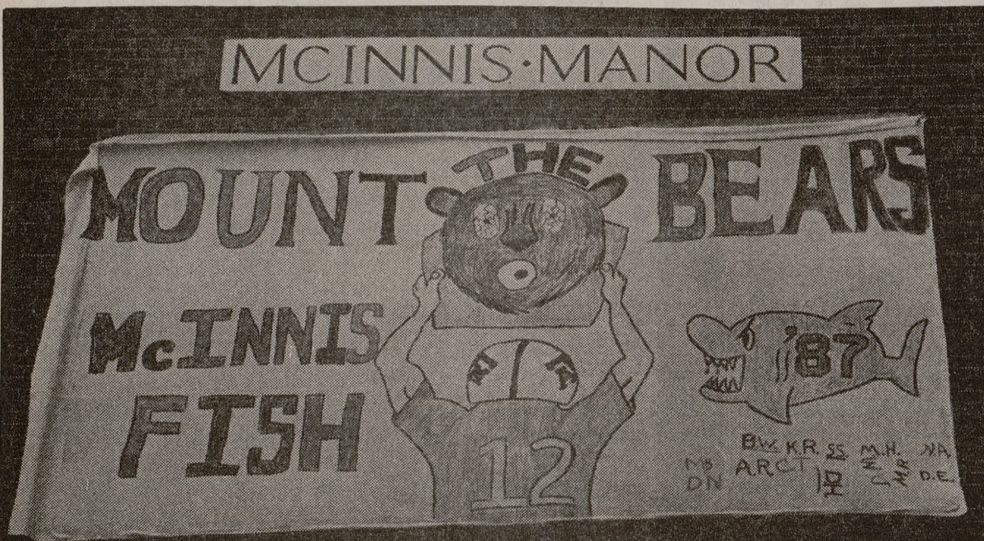 MCINNIS·MANOR
MOUNT THE BEARS
McINNIS
FISH
'87
12
B.W. K.R. S.S. M.H. N.A.
MB A.R. C.T. MR D.E.
DN